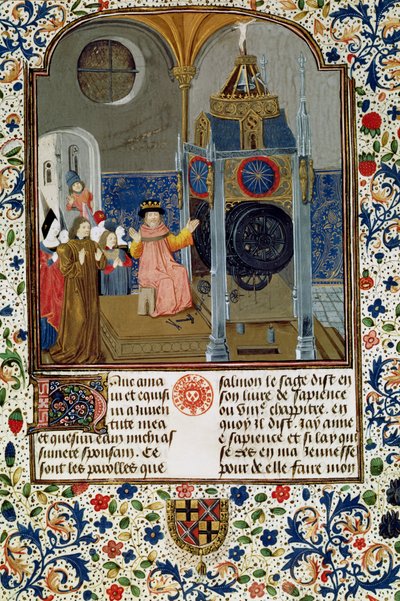 Hanc ama
ui et equisi
ui a iuuen
tute mea
et quesiui eam michi as
sumere sponsam. Ce
sont les parolles que
salmon le sage dist en
son liure de sapience
ou viije chappitre. en
quoy il dist. Jay ame
e sapience et si lay qui
se des en ma Jeunesse
pour de elle faire mon